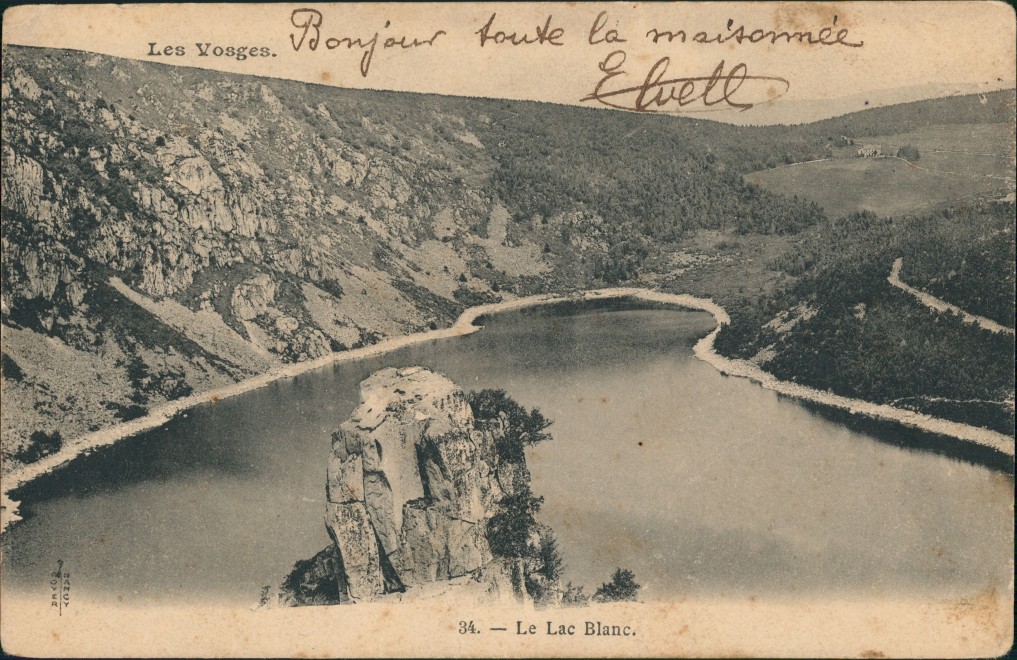 Les Vosges.
Bonjour toute la maisonnée
34. — Le Lac Blanc.
ROYER NANCY